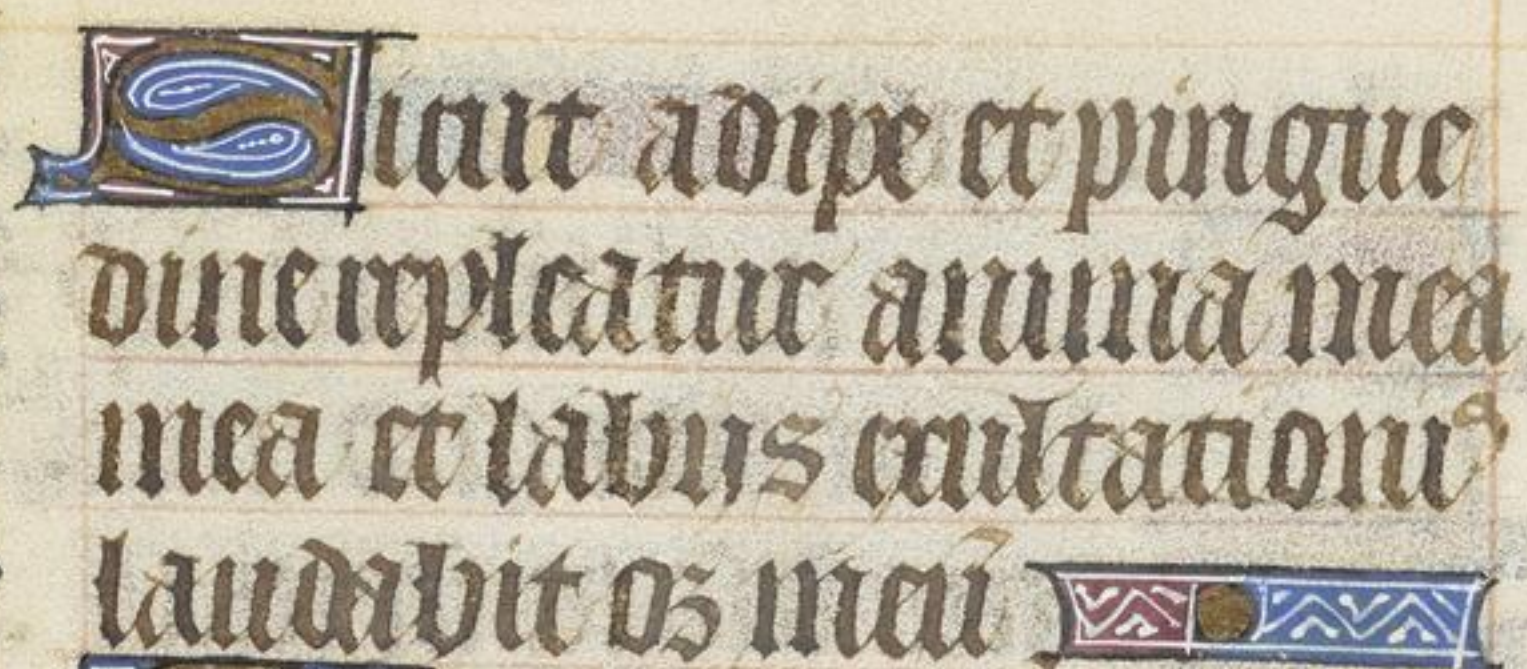 Sicut adipe et pingue
dine repleatur anima mea
mea et labiis exultationis
laudabit os meū